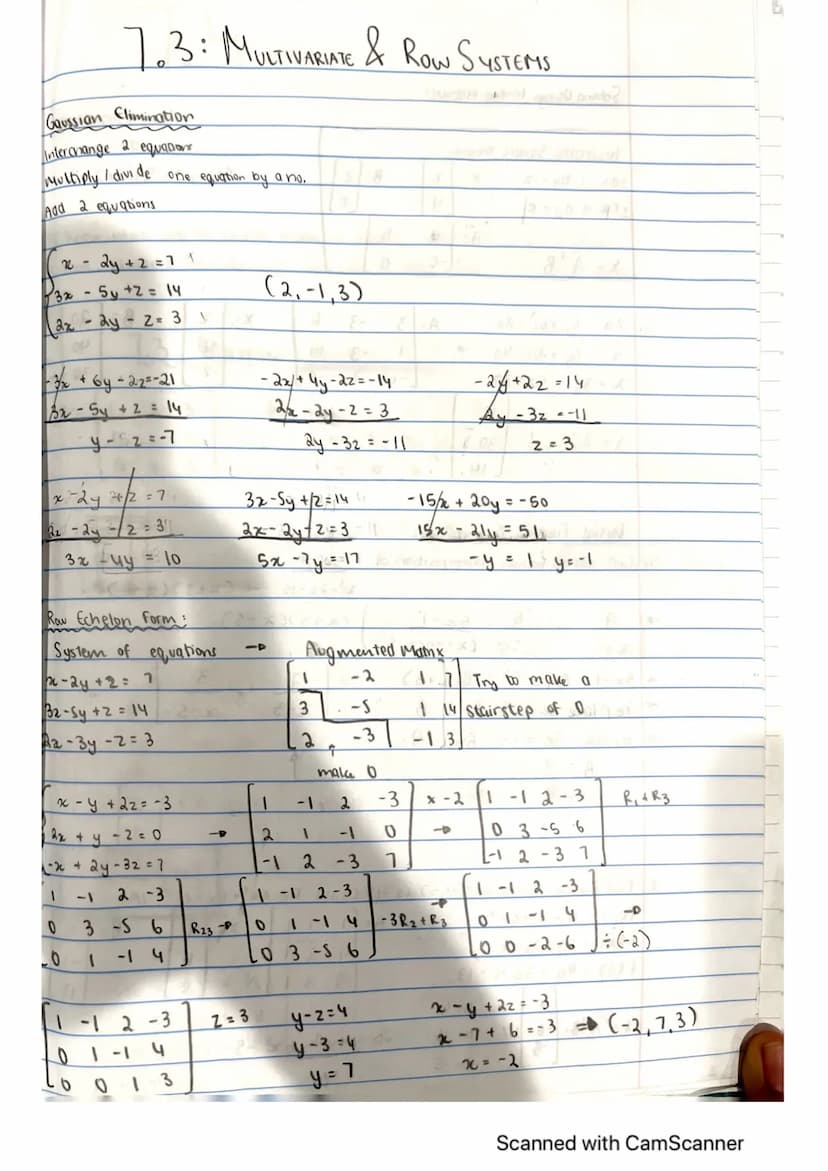 7.3: MULTIVARIATE & ROW SYSTEMS
Gaussian Elimination
Interchange 2 equations
Multiply / divide one equation by a no.
Add 2 equations
x - 2y + z = 7
3x - 5y + z = 14 (2, -1, 3)
2x - 2y - z = 3
-3x + 6y - 2z = -21 -2x + 4y - 2z = -14 -2y + 2z = 14
3x - 5y + z = 14 2x - 2y - z = 3 2y - 3z = -11
y - z = -7 2y - 3z = -11 z = 3
x - 2y + z = 7 3x - 5y + z = 14 -15x + 20y = -50
2x - 2y - z = 3 2x - 2y - z = 3 15x - 21y = 51
3x - 4y = 10 5x - 7y = 17 -y = 1 y = -1
Row Echelon Form:
System of equations → Augmented Matrix
x - 2y + z = 7 1 -2 1 7 Try to make a
3x - 5y + z = 14 3 -5 1 14 stairstep of 0
2x - 3y - z = 3 2 -3 -1 3
make 0
x - y + 2z = -3 1 -1 2 -3 x -2 1 -1 2 -3 R1 + R3
2x + y - z = 0 → 2 1 -1 0 → 0 3 -5 6
-x + 2y - 3z = 7 -1 2 -3 7 -1 2 -3 7
1 -1 2 -3 1 -1 2 -3 → 1 -1 2 -3
0 3 -5 6 R23 → 0 1 -1 4 -3R2 + R3 0 1 -1 4 →
0 1 -1 4 0 3 -5 6 0 0 -2 -6 ÷ (-2)
1 -1 2 -3 z = 3 y - z = 4 x - y + 2z = -3
0 1 -1 4 y - 3 = 4 x - 7 + 6 = -3 ⇒ (-2, 7, 3)
0 0 1 3 y = 7 x = -2
Scanned with CamScanner